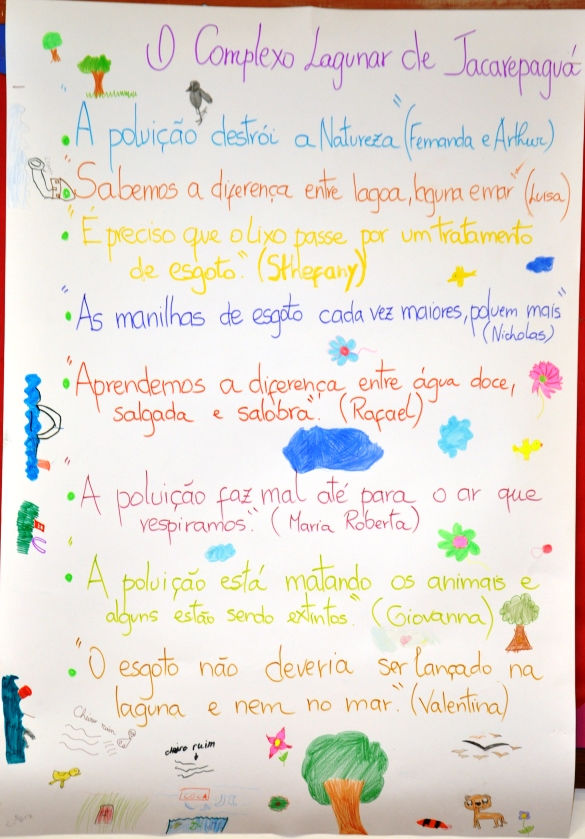 O Complexo Lagunar de Jacarepaguá
• "A poluição destrói a Natureza" (Fernanda e Arthur)
• "Sabemos a diferença entre lagoa, laguna e mar" (Luisa)
• "É preciso que o lixo passe por um tratamento
de esgoto." (Sthefany)
• "As manilhas de esgoto cada vez maiores, poluem mais"
(Nicholas)
• "Aprendemos a diferença entre água doce,
salgada e salobra". (Rafael)
• "A poluição faz mal até para o ar que
respiramos." (Maria Roberta)
• "A poluição está matando os animais e
alguns estão sendo extintos." (Giovanna)
• "O esgoto não deveria ser lançado na
laguna e nem no mar." (Valentina)
Cheiro ruim
cheiro ruim
COCA